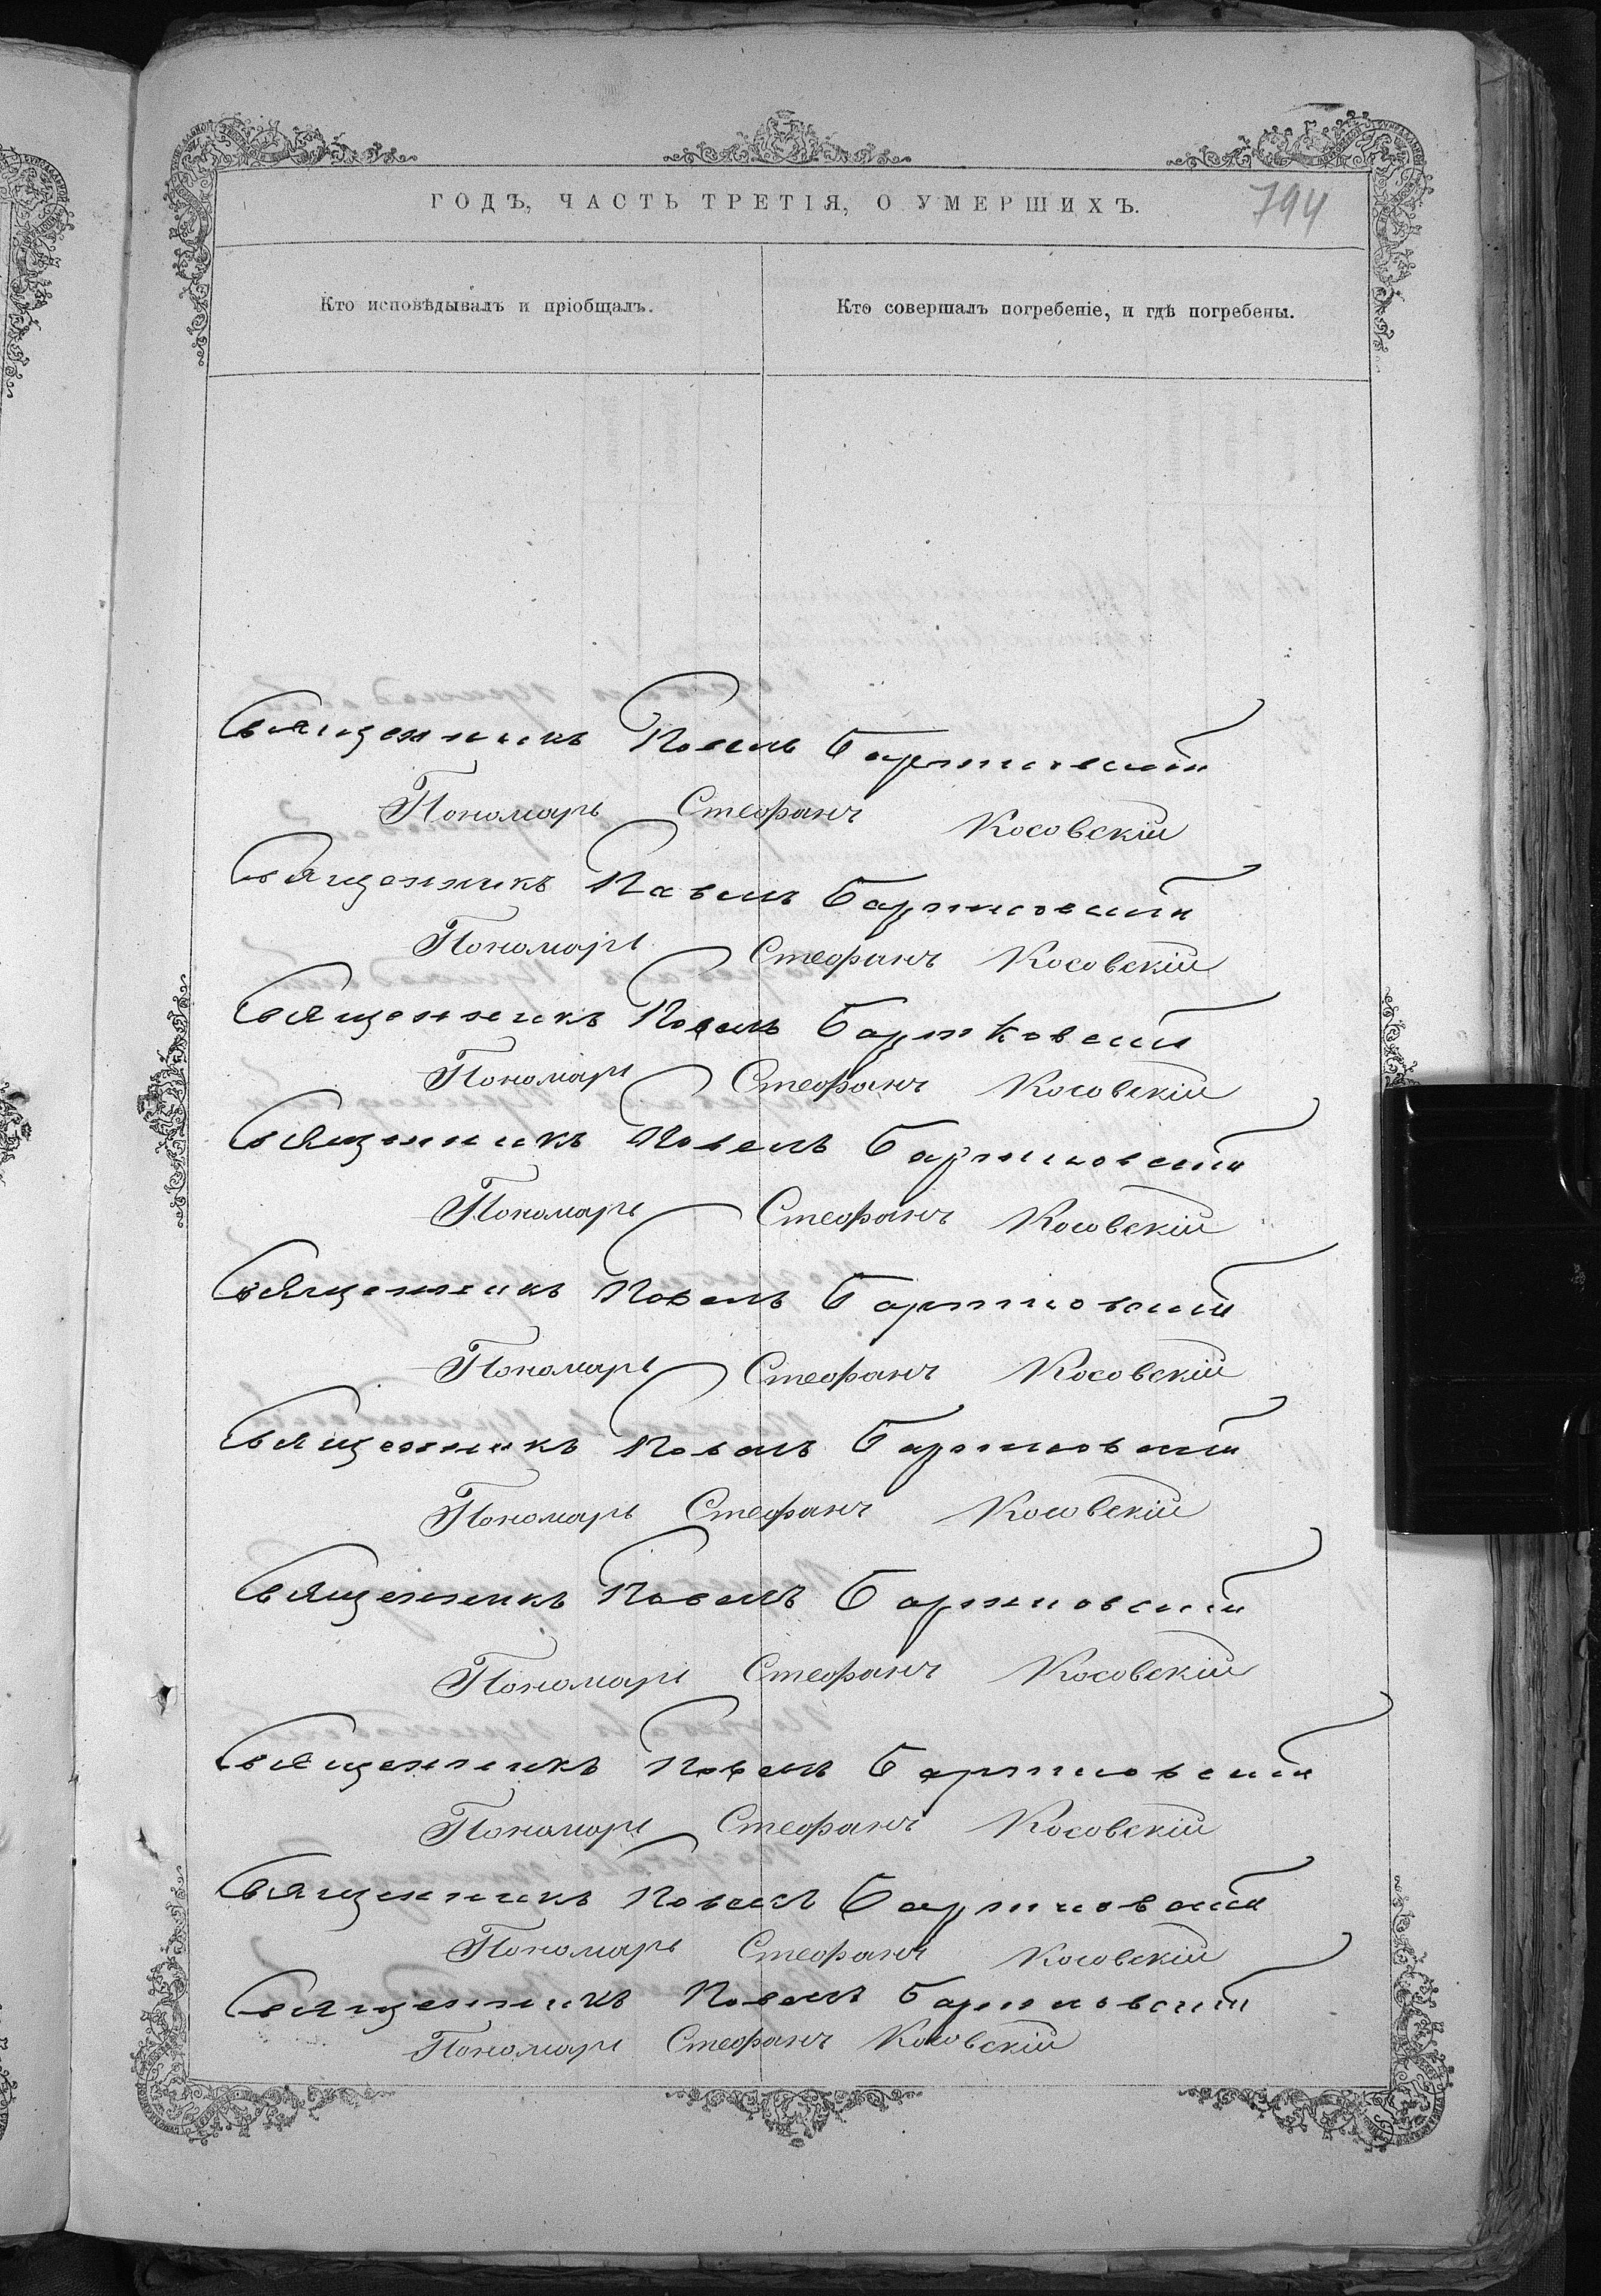 ГОДЪ, ЧАСТЬ ТРЕТІЯ, О УМЕРШИХЪ.
794
Кто исповѣдывалъ и пріобщалъ.
Кто совершалъ погребеніе, и гдѣ погребены.
Священникъ Павелъ Бартковскій
Пономарь Стефанъ Косовскій
Священникъ Павелъ Бартковскій
Пономарь Стефанъ Косовскій
Священникъ Павелъ Бартковскій
Пономарь Стефанъ Косовскій
Священникъ Павелъ Бартковскій
Пономарь Стефанъ Косовскій
Священникъ Павелъ Бартковскій
Пономарь Стефанъ Косовскій
Священникъ Павелъ Бартковскій
Пономарь Стефанъ Косовскій
Священникъ Павелъ Бартковскій
Пономарь Стефанъ Косовскій
Священникъ Павелъ Бартковскій
Пономарь Стефанъ Косовскій
Священникъ Павелъ Бартковскій
Пономарь Стефанъ Косовскій
Священникъ Павелъ Бартковскій
Пономарь Стефанъ Косовскій